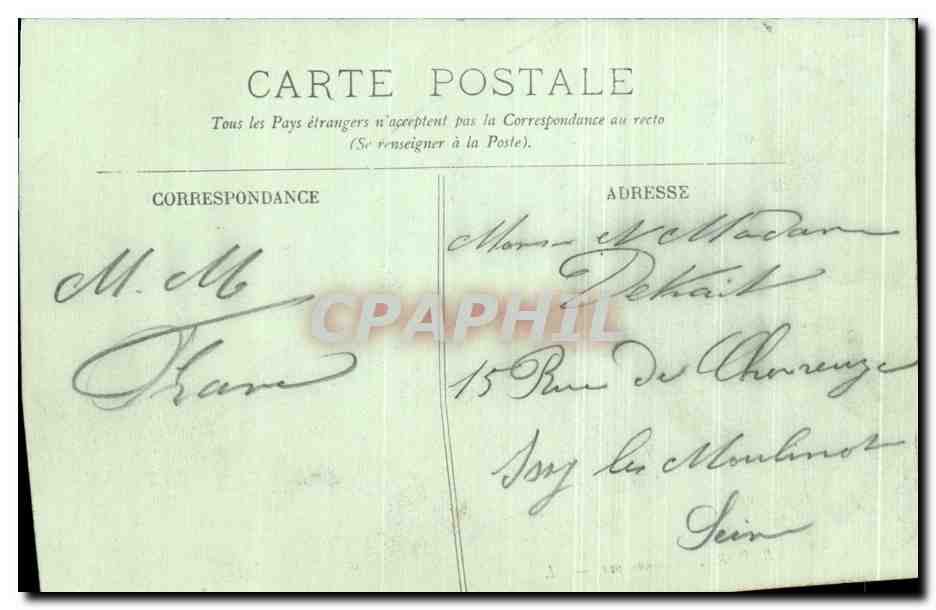 CARTE POSTALE
Tous les Pays étrangers n'acceptent pas la Correspondance au recto
(Se renseigner à la Poste).
CORRESPONDANCE
ADRESSE
M. M
Mons et Madame
15 Rue de Chevreuze
Issy les Moulinot
Seine
CPAPHIL